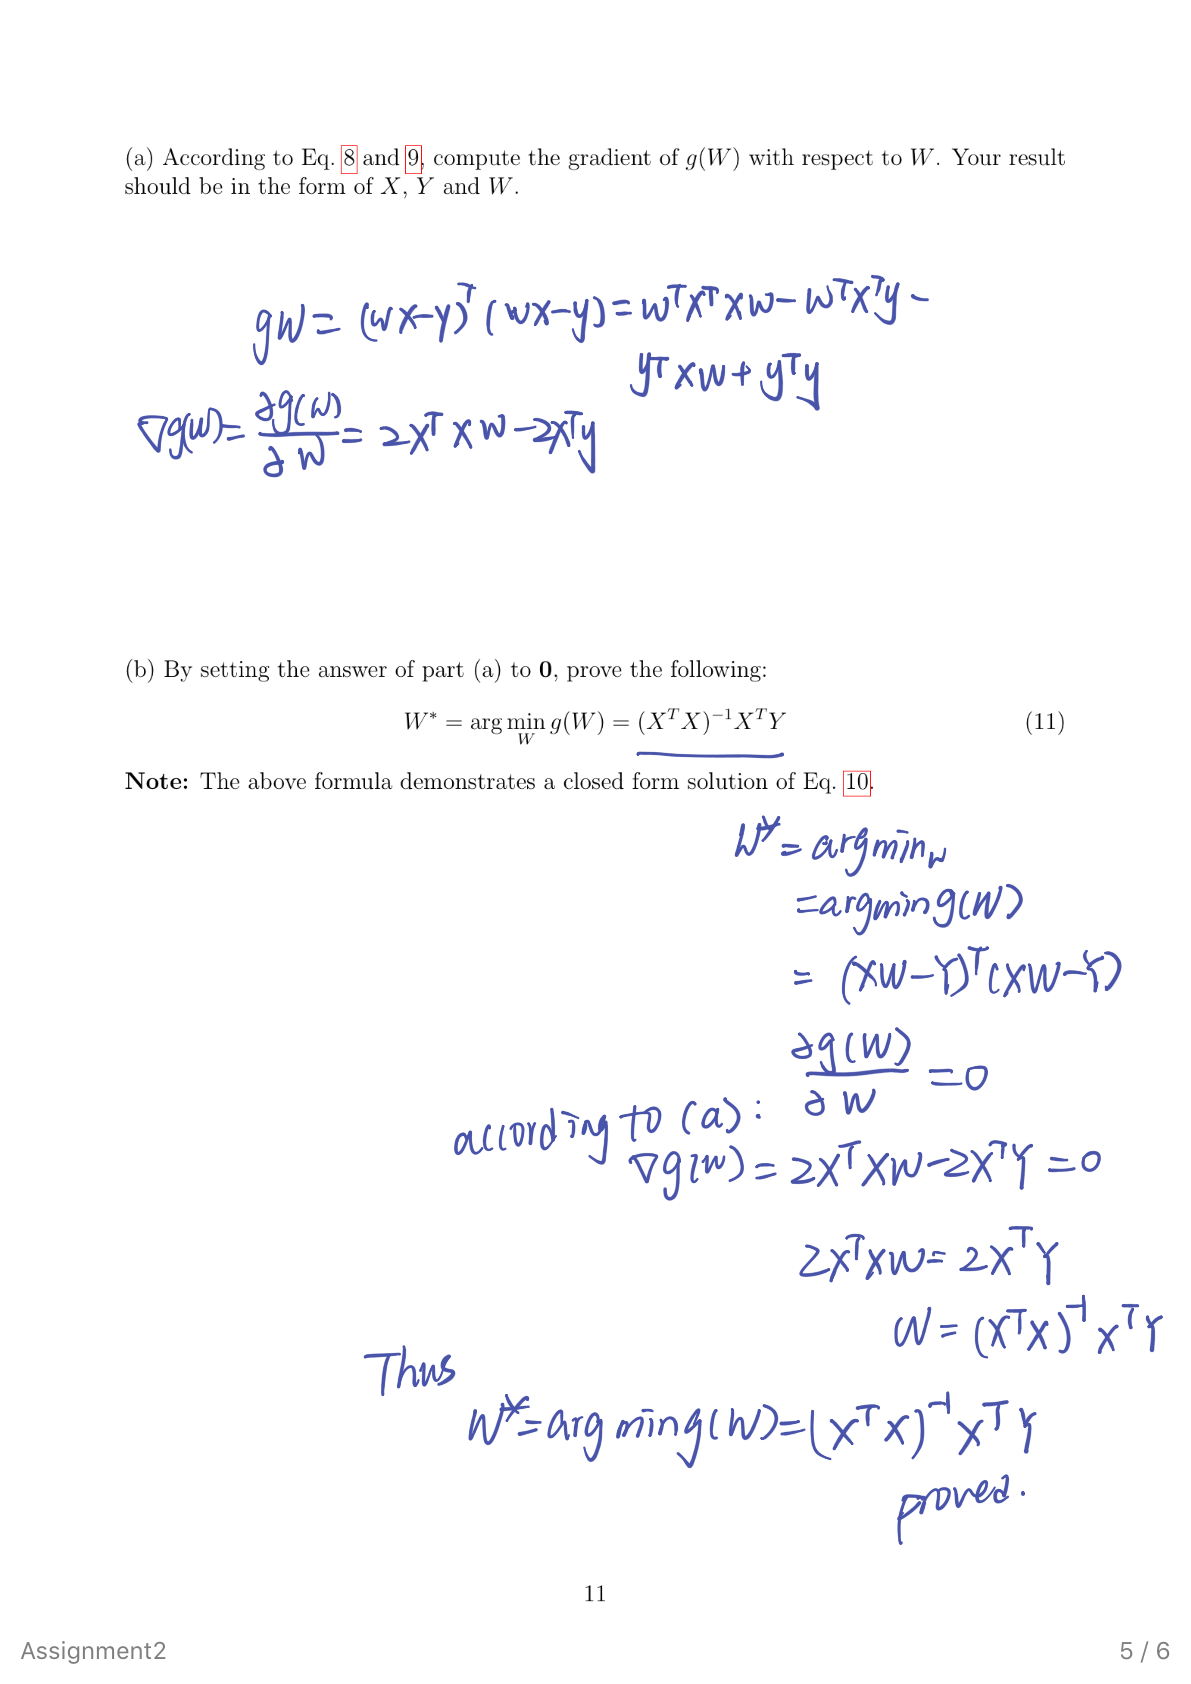 (a) According to Eq. 8 and 9, compute the gradient of g(W) with respect to W. Your result
should be in the form of X, Y and W.
gW = (wX-y)^T (wX-y) = w^T X^T X w - w^T X^T y -
y^T X w + y^T y
∇g(w) = ∂g(w)/∂w = 2X^T X w - 2X^T y
(b) By setting the answer of part (a) to 0, prove the following:
W* = arg min_W g(W) = (X^T X)^{-1} X^T Y (11)
Note: The above formula demonstrates a closed form solution of Eq. 10.
W* = argmin_w
= argmin g(W)
= (XW-Y)^T (XW-Y)
∂g(W)/∂W = 0
according to (a):
∇g(w) = 2X^T XW - 2X^T Y = 0
2X^T XW = 2X^T Y
W = (X^T X)^{-1} X^T Y
Thus
W* = arg min g(W) = (X^T X)^{-1} X^T Y
proved.
11
Assignment2 5 / 6